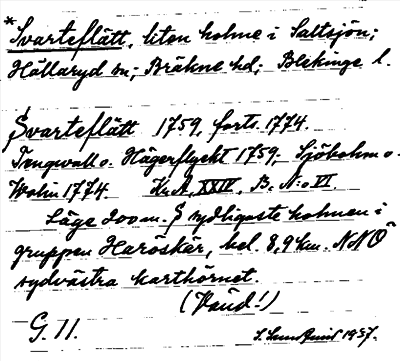 *Svarteflätt, liten holme i Saltsjön;
Hällaryd sn; Bräkne hd; Blekinge l.
Svarteflätt 1759, forts. 1774.
Tengwall o. Hägerflycht 1759; Sjöbohm o.
Wolin 1774. Kr.A, XXIV, B. N:o VI.
Läge 200 m. S sydligaste holmen i
gruppen Haröskär, bel. 8,9 km. NNÖ
sydvästra karthörnet.
(Känd!)
G. 11.
1957.